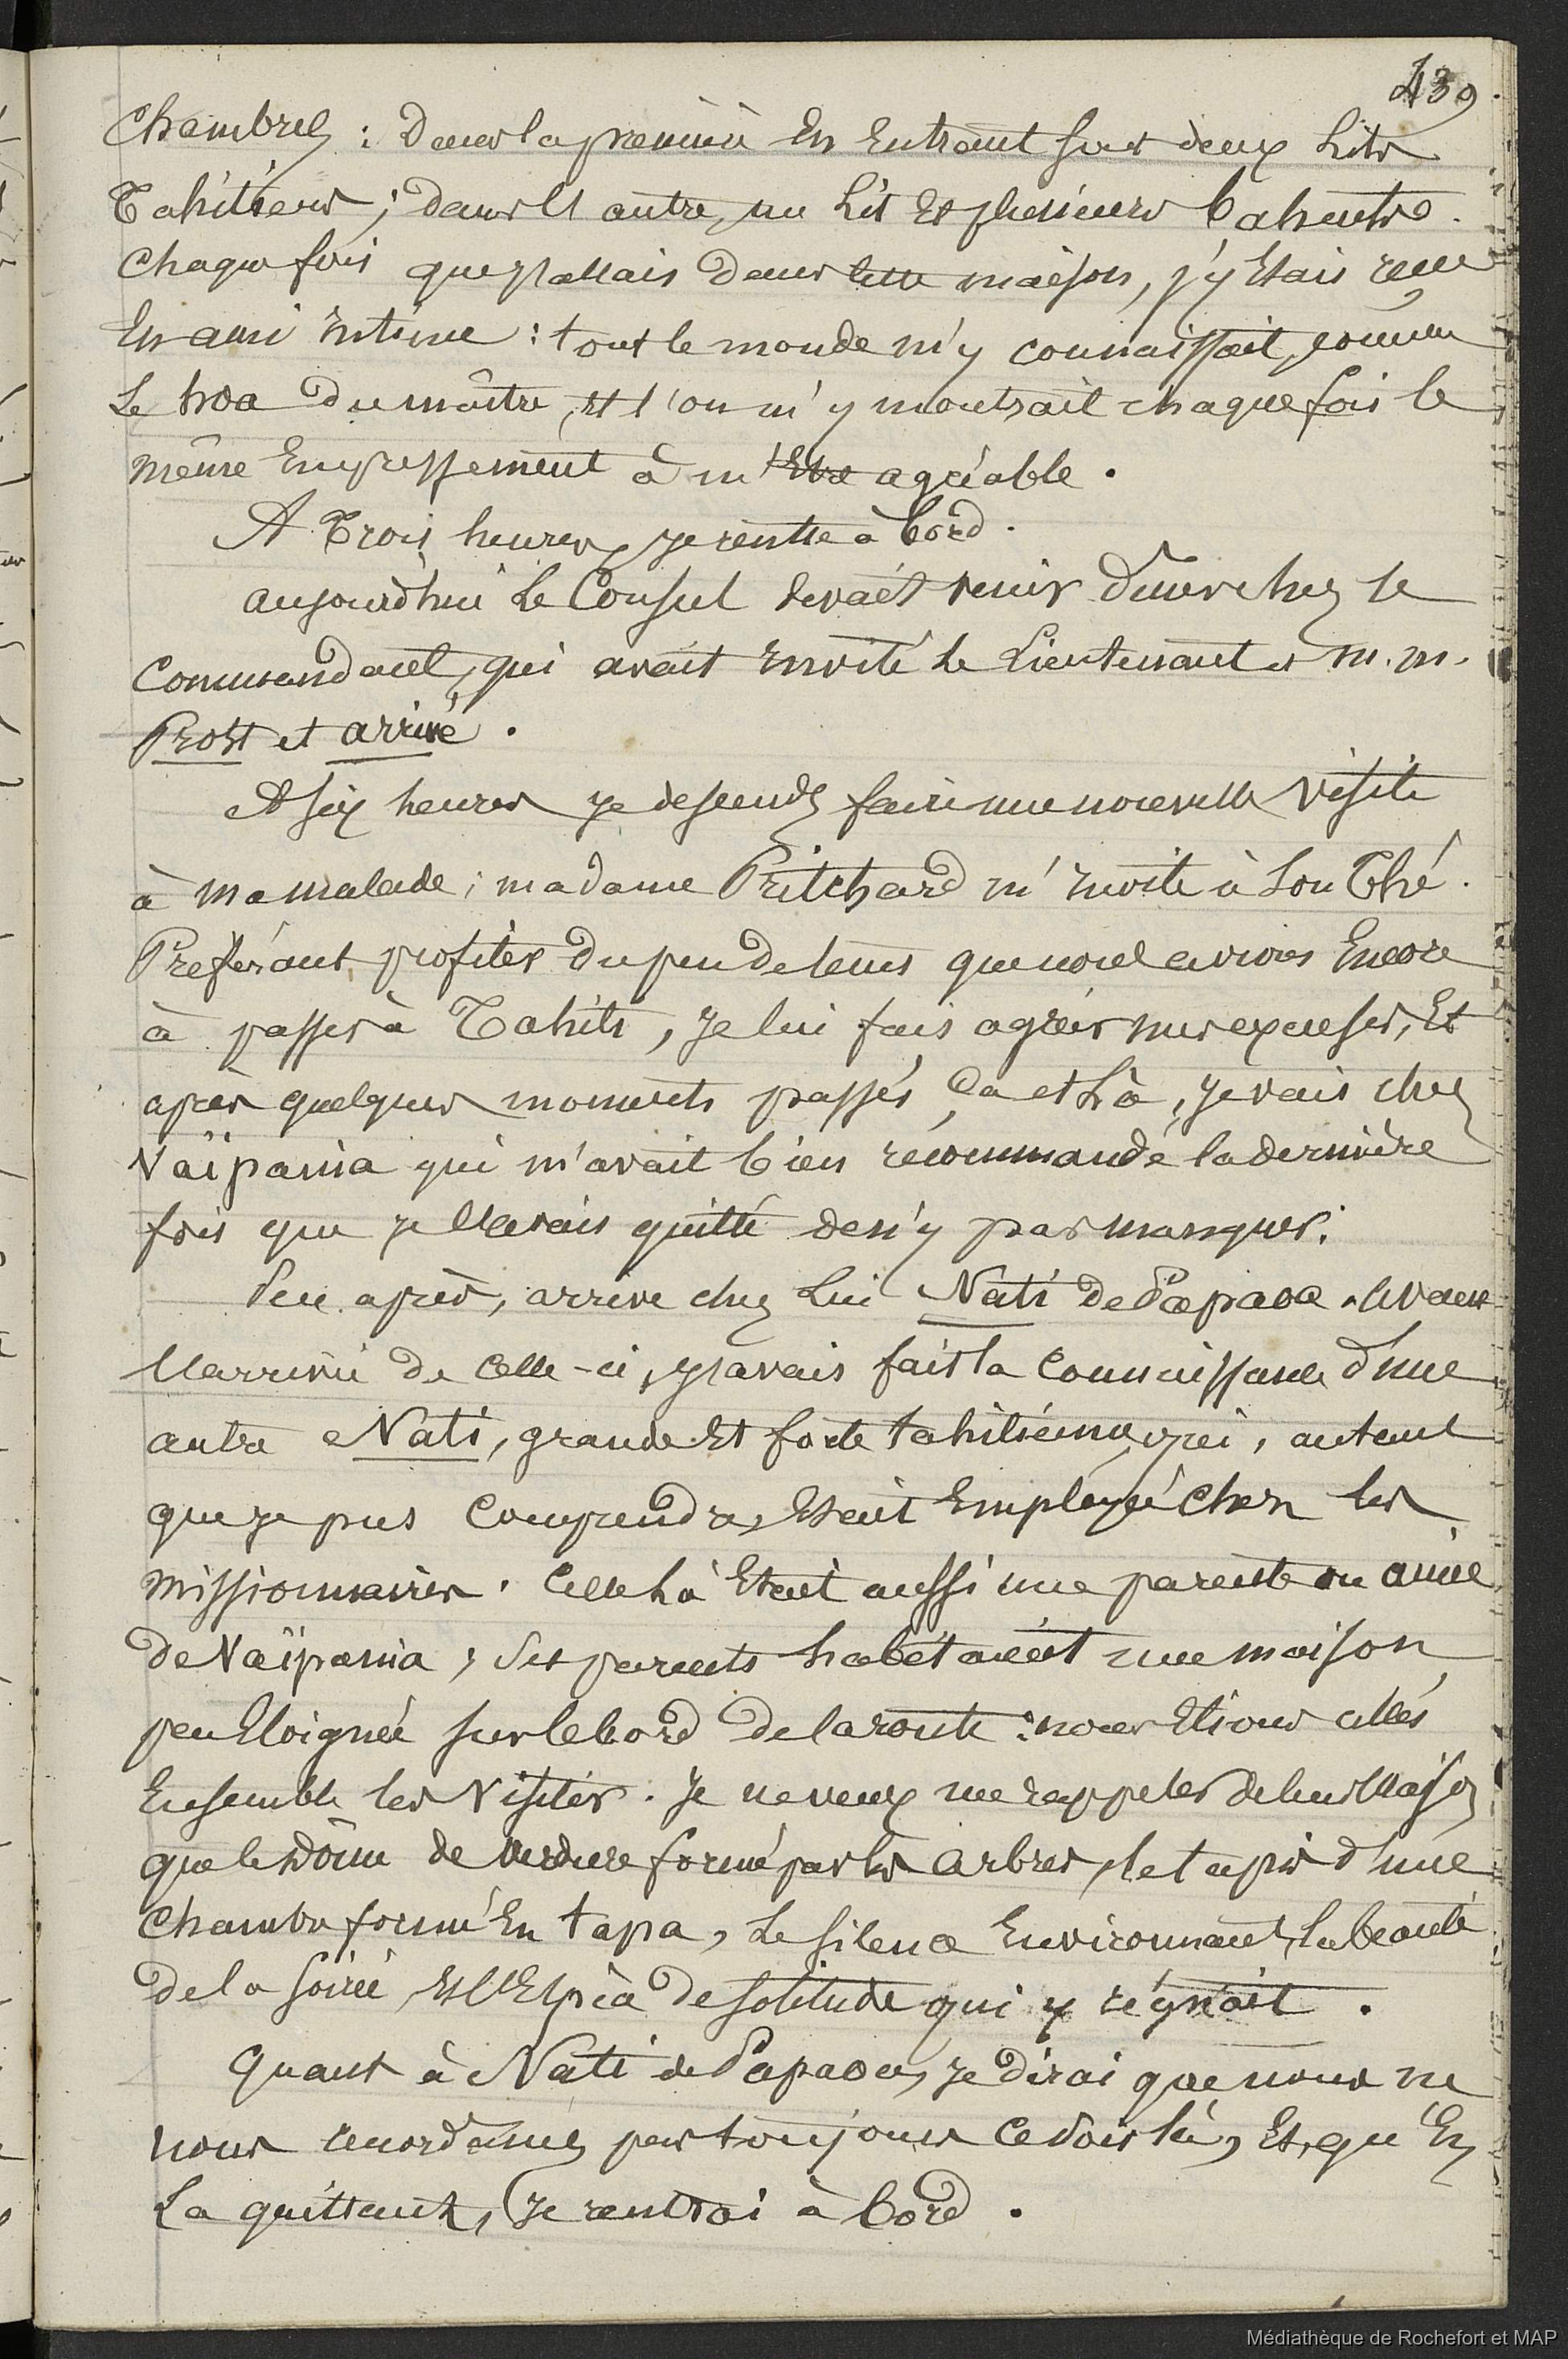 439.
Chambres : dans la première en entrant sont deux lits
Tahitiens ; dans les autres, un lit et plusieurs bahuts.
Chaque fois que j'allais dans cette maison, j'y étais reçu
en ami intime : tout le monde m'y connaissait, comme
le hoa du maître, et l'on m'y montrait chaque fois le
même empressement à m'être agréable.
A trois heures, je rentre à bord.
aujourd'hui le Consul devait venir dîner chez le
Commandant, qui avait invité le Lieutenant et m. m.
Prost et arrivé.
A six heures je descends faire une nouvelle visite
à ma malade ; madame Pritchard m'invite à son Thé.
Préférant profiter du peu de tems que nous avions encore
à passer à Tahiti, je lui fais agréer mes excuses, et
après quelques moments passés ça et là, je vais chez
Vaïpania qui m'avait bien récommandé la dernière
fois que je l'avais quitté de n'y pas manquer.
Peu après, arrive chez lui Nati de Papaoa. Avant
l'arrivée de celle-ci, j'avais fait la connaissance d'une
autre Nati, grande et forte tahitienne, qui, autant
que je pus comprendre, était employée chez les
missionnaires. Celle là était aussi une parente ou amie
de Vaïpania ; ses parents habitaient une maison
peu éloignée sur le bord de la route : nous étions allés
ensemble les visiter. Je ne veux me rappeler de leur maison
que le dôme de verdure formé par les arbres, le tapis d'une
chambre formé en tapa, le silence environnant, la beauté
de la soirée, et l'espèce de solitude qui y régnait.
Quant à Nati de Papaoa, je dirai que nous ne
nous accordâmes pas toujours ce soir là, et qu'en
la quittant, je rentrai à bord.
Médiathèque de Rochefort et MAP